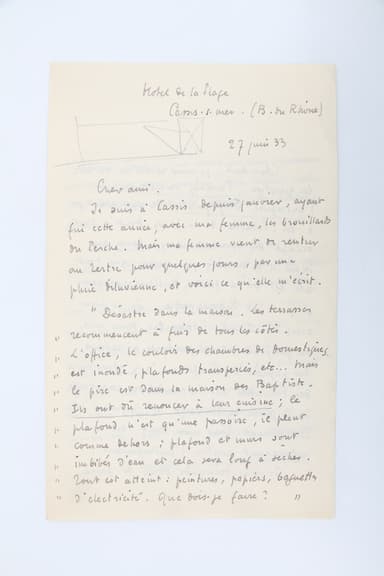 Hotel de la Plage
Cassis-s-mer. (B. du Rhône)
27 juin 33
Cher ami.
Je suis à Cassis depuis janvier, ayant
fui cette année, avec ma femme, les brouillards
du Perche. Mais ma femme vient de rentrer
au Tertre pour quelques jours, par une
pluie diluvienne, et voici ce qu'elle m'écrit.
" Désastre dans la maison. Les terrasses
recommencent à fuir de tous les côtés.
" L'office, le couloir des chambres de domestiques,
" est inondé, plafonds transpercés, etc... Mais
" le pire est dans la maison des Baptiste.
" Ils ont dû renoncer à leur cuisine ; le
" plafond n'est qu'une passoire, il pleut
" comme dehors ; plafond et murs sont
" imbibés d'eau et cela sera long à sécher.
" Tout est atteint : peintures, papiers, baguettes
" d'électricité. Que dois-je faire ? "